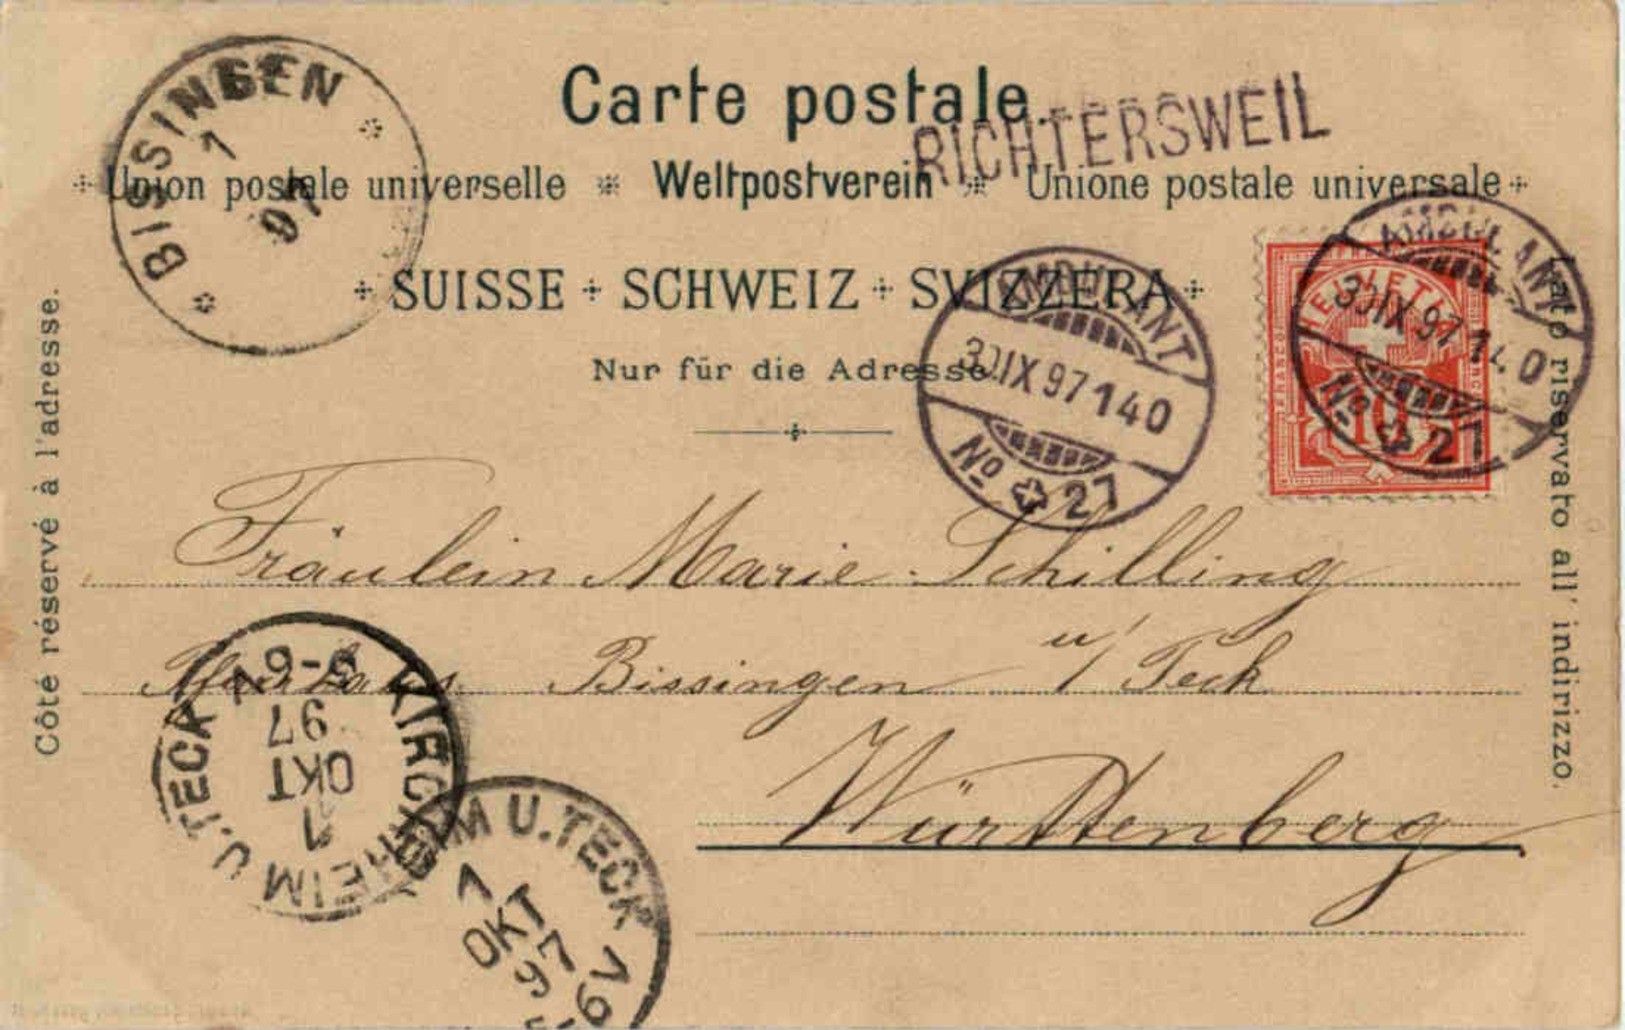 Carte postale.
RICHTERSWEIL
Union postale universelle ※ Weltpostverein ※ Unione postale universale
SUISSE + SCHWEIZ + SVIZZERA
Nur für die Adresse.
BISSINGEN
1
97
AMBULANT
30 IX 97 140
No 27
HELVETIA
10
AMBULANT
30 IX 97 140
No 27
Côté réservé à l'adresse.
Lato riservato all' indirizzo.
Fräulein Marie Schilling
Pfarrhaus Bissingen u/ Teck
Württenberg
KIRCHHEIM U. TECK
1
OKT
97
5-6 V
KIRCHHEIM U. TECK
1
OKT
97